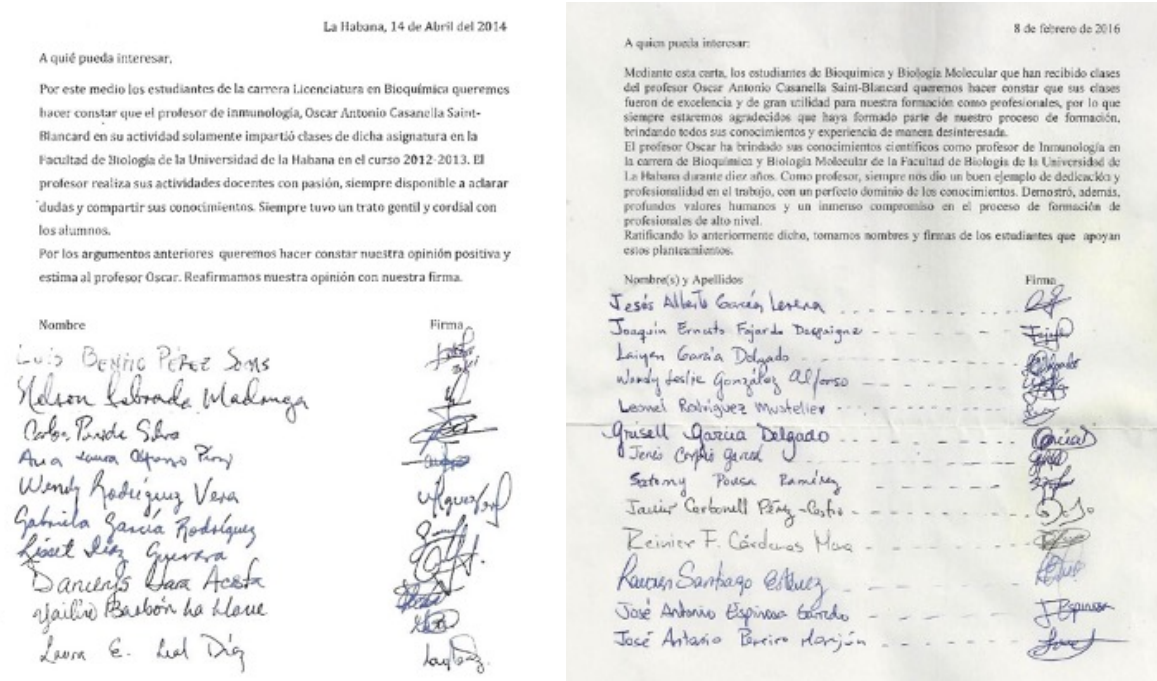 La Habana, 14 de Abril del 2014
A quié pueda interesar,
Por este medio los estudiantes de la carrera Licenciatura en Bioquímica queremos
hacer constar que el profesor de inmunología, Oscar Antonio Casanella Saint-
Blancard en su actividad solamente impartió clases de dicha asignatura en la
Facultad de Biología de la Universidad de la Habana en el curso 2012-2013. El
profesor realiza sus actividades docentes con pasión, siempre disponible a aclarar
dudas y compartir sus conocimientos. Siempre tuvo un trato gentil y cordial con
los alumnos.
Por los argumentos anteriores queremos hacer constar nuestra opinión positiva y
estima al profesor Oscar. Reafirmamos nuestra opinión con nuestra firma.
Nombre Firma
Luis Benito Pérez
Nelson Labrada
Carlos Silva
Ana Laura Alfonso Pérez
Wendy Rodríguez Vera
Gabriela García Rodríguez
Lisset Díaz Guevara
Dancerys Lara Acosta
Yailin Barbón La Llave
Laura E. Leal Díaz
8 de febrero de 2016
A quien pueda interesar:
Mediante esta carta, los estudiantes de Bioquímica y Biología Molecular que han recibido clases
del profesor Oscar Antonio Casanella Saint-Blancard queremos hacer constar que sus clases
fueron de excelencia y de gran utilidad para nuestra formación como profesionales, por lo que
siempre estaremos agradecidos que haya formado parte de nuestro proceso de formación,
brindando todos sus conocimientos y experiencia de manera desinteresada.
El profesor Oscar ha brindado sus conocimientos científicos como profesor de Inmunología en
la carrera de Bioquímica y Biología Molecular de la Facultad de Biología de la Universidad de
La Habana durante diez años. Como profesor, siempre nos dio un buen ejemplo de dedicación y
profesionalidad en el trabajo, con un perfecto dominio de los conocimientos. Demostró, además,
profundos valores humanos y un inmenso compromiso en el proceso de formación de
profesionales de alto nivel.
Ratificando lo anteriormente dicho, tomamos nombres y firmas de los estudiantes que apoyan
estos planteamientos.
Nombre(s) y Apellidos Firma
Jesús Alberto García
Joaquín Ernesto Fajardo Despaigne
Laiyen García Delgado
Wendy Leslie González Alfonso
Leonel Rodríguez Mustelier
Grisell García Delgado
García
Pousa Ramírez
Javier Carbonell Pérez-Castro
Reinier F. Cárdenas
Santiago
José Antonio Espinosa Garrido J Espinosa
José Antonio